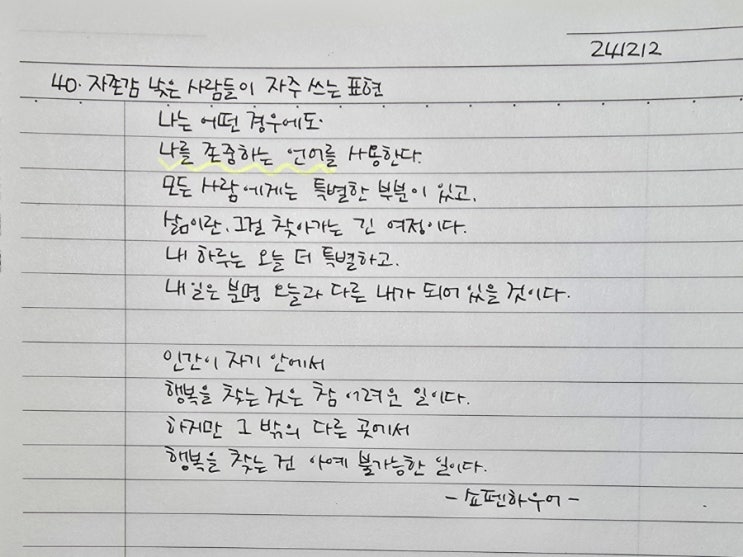 241212
40. 자존감 낮은 사람들이 자주 쓰는 표현
나는 어떤 경우에도
나를 존중하는 언어를 사용한다.
모든 사람에게는 특별한 부분이 있고,
삶이란, 그걸 찾아가는 긴 여정이다.
내 하루는 오늘 더 특별하고,
내일은 분명 오늘과 다른 내가 되어 있을 것이다.
인간이 자기 안에서
행복을 찾는 것은 참 어려운 일이다.
하지만 그 밖의 다른 곳에서
행복을 찾는 건 아예 불가능한 일이다.
- 쇼펜하우어 -